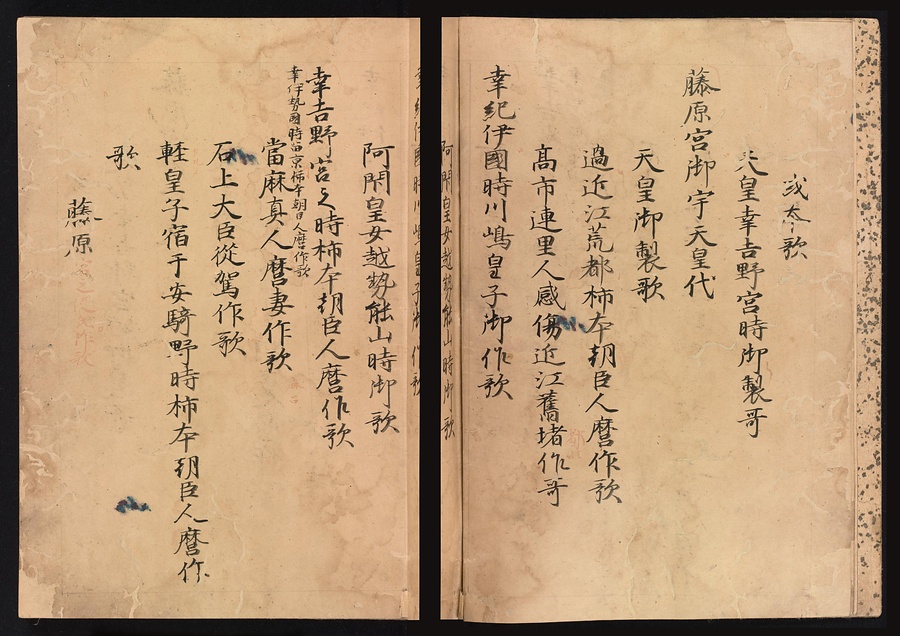 或夲歌
天皇幸吉野宮時御製哥
藤原宮御宇天皇代
天皇御製歌
過近江荒都柿夲朝臣人麿作歌
高市連里人感傷近江舊堵作哥
幸紀伊國時川嶋皇子御作歌
阿閇皇女越勢能山時御歌
幸吉野宮之時柿夲朝臣人麿作歌
幸伊勢國時留京柿夲朝臣人麿作歌
當麻真人麿妻作歌
石上大臣從駕作歌
軽皇子宿于安騎野時柿夲朝臣人麿作
歌
藤原